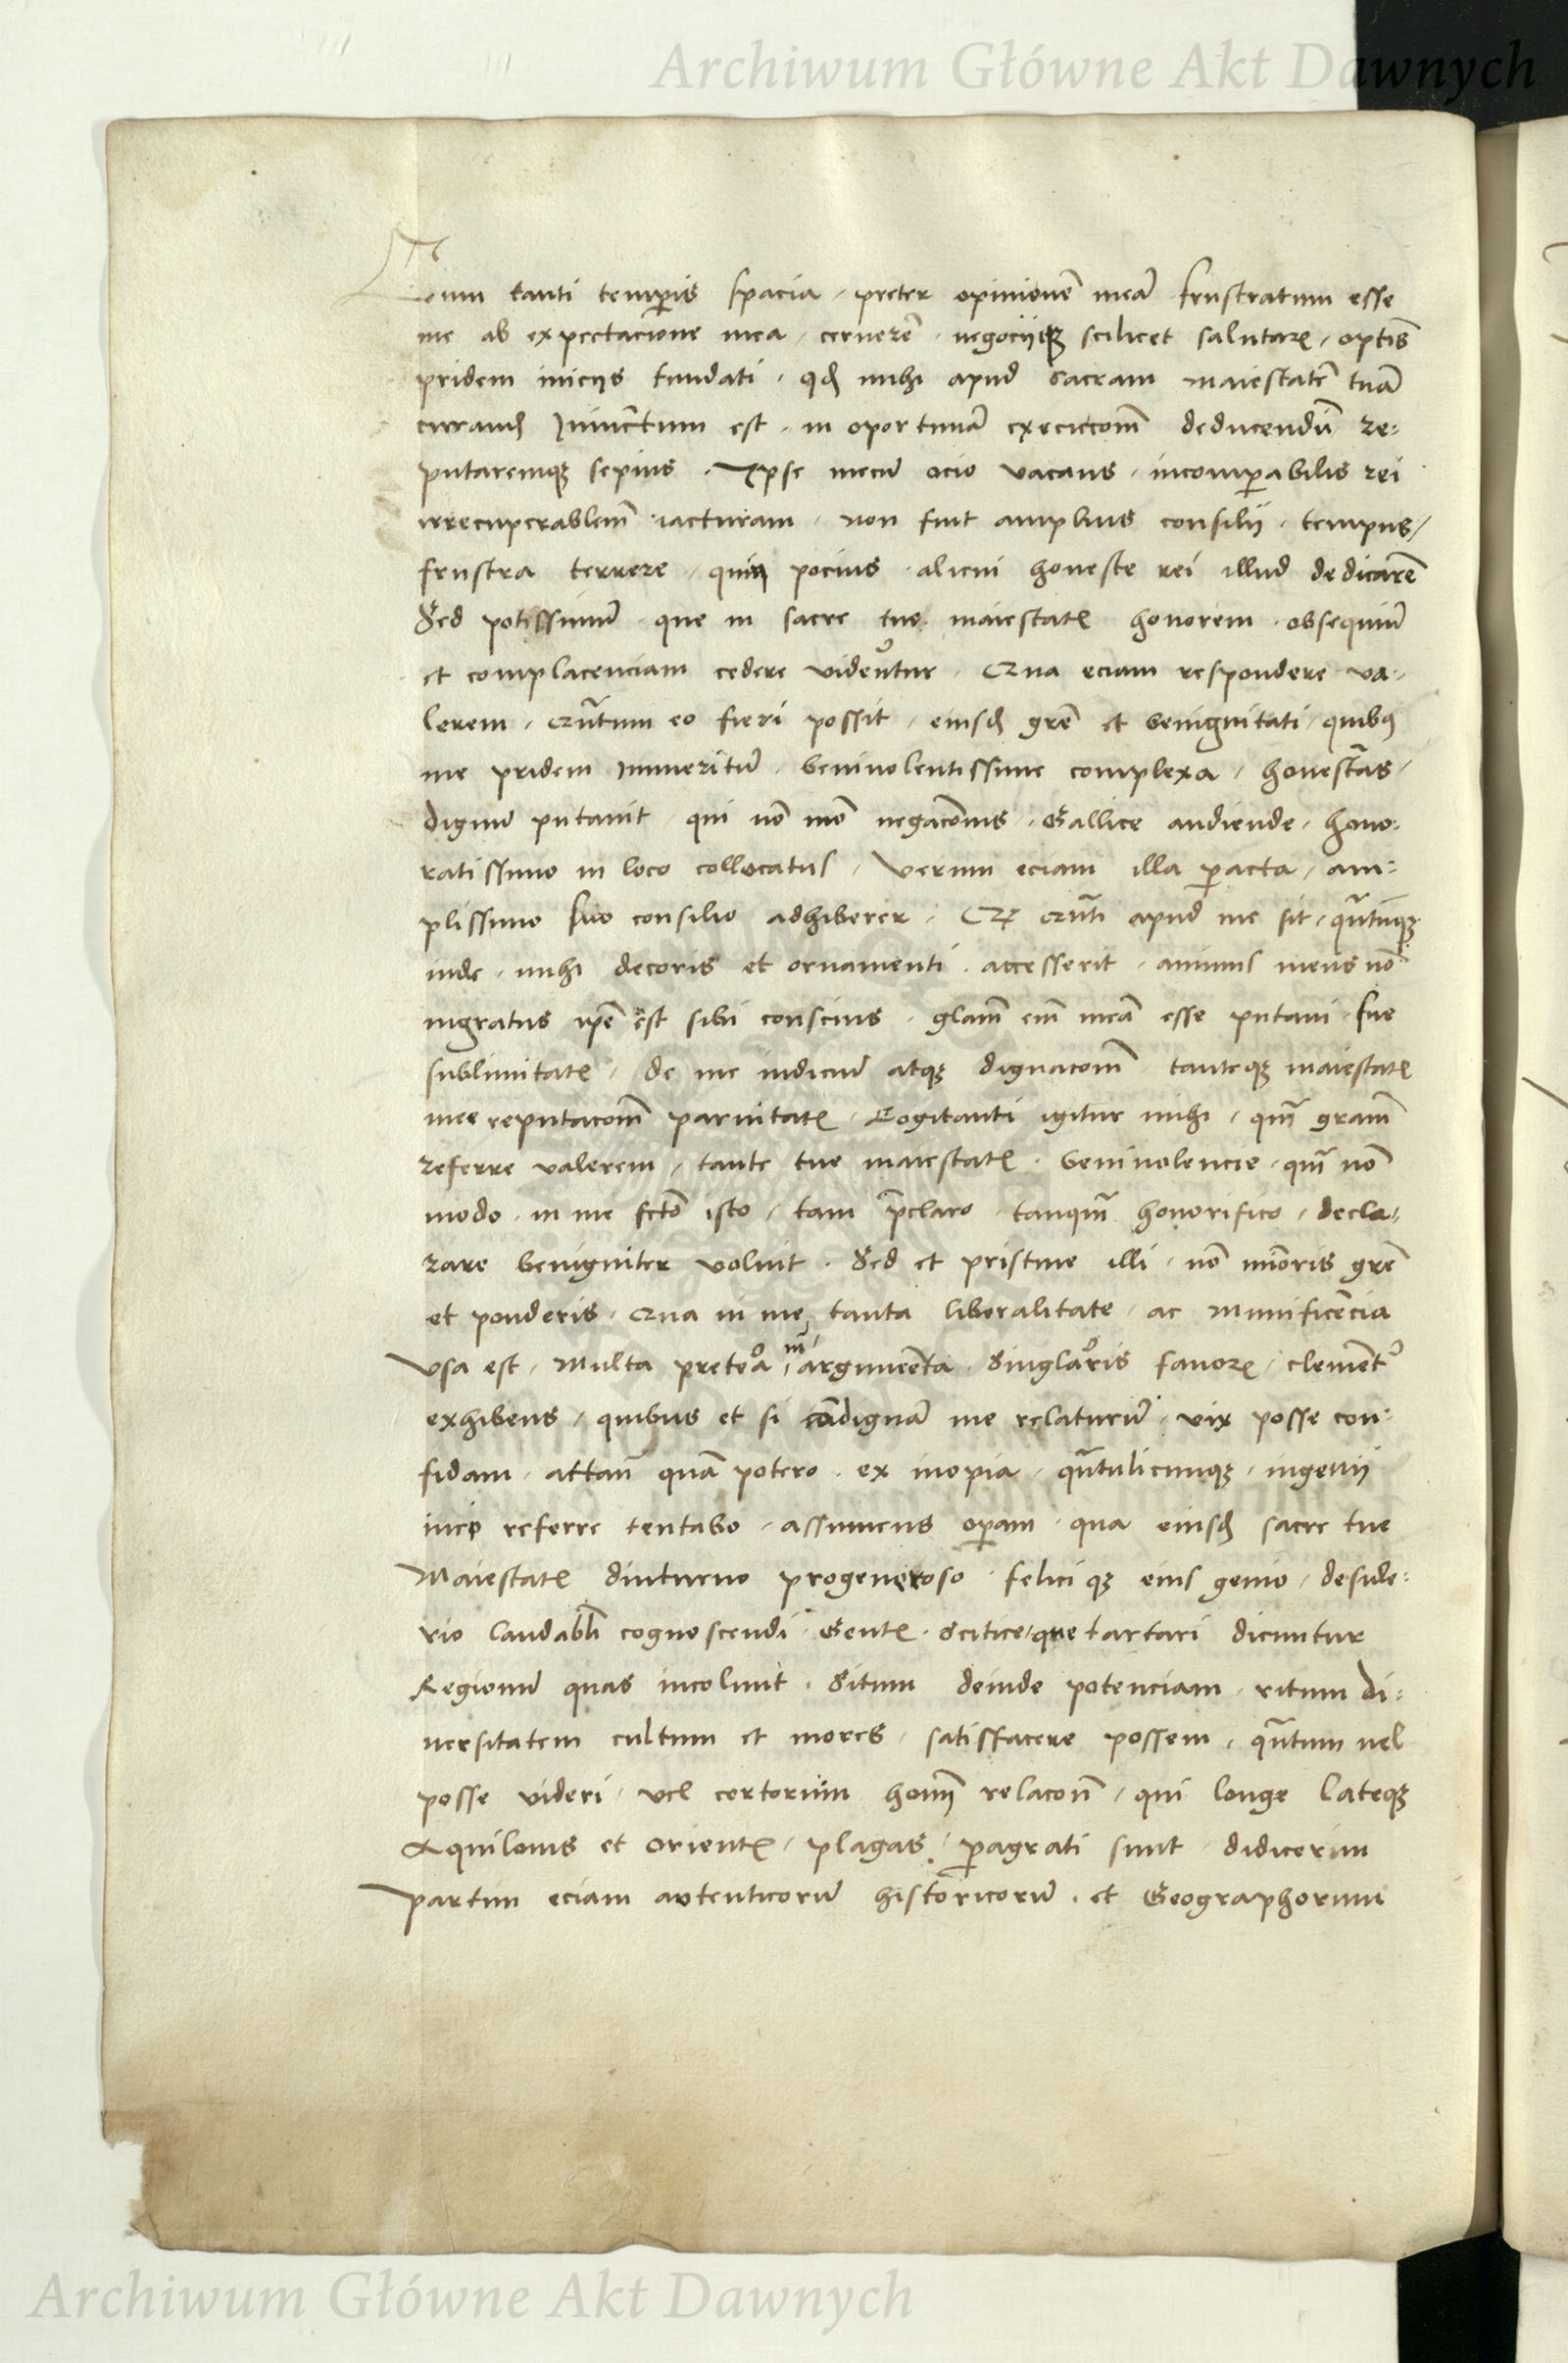 Archiwum Główne Akt Dawnych
Cum tanti temꝑis spacia / preter opinionē meā frustratum esse
me ab expectacione mea / cernerē / negociiqꝫ scilicet salutarꝭ / optīs
pridem iniciis fundati / qđ mihi apud sacram maiestatē tuā
curanđ Iniunctum est / in oportunā execucōm̄ deducendū re-
putaremqꝫ sepius / Ipse mecū ocio vacans / incomꝑabilis rei
irrecuperablem̄ iacturam / non fuit amplius consilii / tempus /
frustra terrere / quin pocius alicui honeste rei illud dedicarē
Sed potissimū que in sacre tue maiestatꝭ honorem obsequiū
et complacenciam cedere videntur / Qua eciam respondere va-
lerem / Qn̄tum eo fieri possit / eiusđ gr̄e et benignitati / quibꝰ
me pridem Immeritū beniuolentissime complexa / honestās /
dignū putauit / qui nō mō negacōnis Gallice audiende / hono-
ratissimo in loco collocatus / Verum eciam illa ꝑacta / am-
plissimo suo consilio adhiberer / Qꝫ Qn̄ti apud me sit / qn̄tūqꝫ
inde / mihi decoris et ornamenti accesserit / animus meus nō
ingratus ip̄e est sibi conscius / gl̄am̄ em̄ meā esse putaui sue
sublimitatꝭ / de me iudiciū atqꝫ dignacōm̄ / tanteqꝫ maiestatꝭ
mee reputacōm̄ paruitatꝭ / Cogitanti igitur mihi / qm̄ gram̄
referre valerem / tante tue maiestatꝭ beniuolencie / qm̄ nō
modo in me fctō isto / tam p̄claro tanqm̄ honorifico / decla-
rare benigniter voluit / Sed et pristine illi / nō mīoris gr̄e
et ponderis / Qua in me tanta liberalitate / ac munificēcia
Vsa est / Multa preteᵒa / in̄ / argumēta Singlaᵒris fauorꝭ / clementʼ
exhibens / quibus et si condignā me relaturū / vix posse con-
fidam / attan̄ quā potero / ex inopia / qn̄tulicumqꝫ / ingenii
mei referre tentabo / assumens oꝑam / qua eiusđ sacre tue
Maiestatꝭ diuturno progeneroso feliciqꝫ eius genio / deside-
rio laudabli cognoscendi Gentꝭ Scitice / que tartari dicuntur
Regionū quas incolunt / Situm deinde potenciam / ritum di-
uersitatem cultum et mores / satisfacere possem / qn̄tum vel
posse videri / vel certorum hom̄ relacon̄ / qui longe Lateqꝫ
Aquilonis et orientꝭ / plagas / ꝑagrati sunt didicerim
Partim eciam autenticorū historicorū / et Geographorum
Archiwum Główne Akt Dawnych